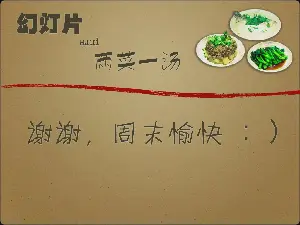 幻灯片
两菜一汤
谢谢，周末愉快：）